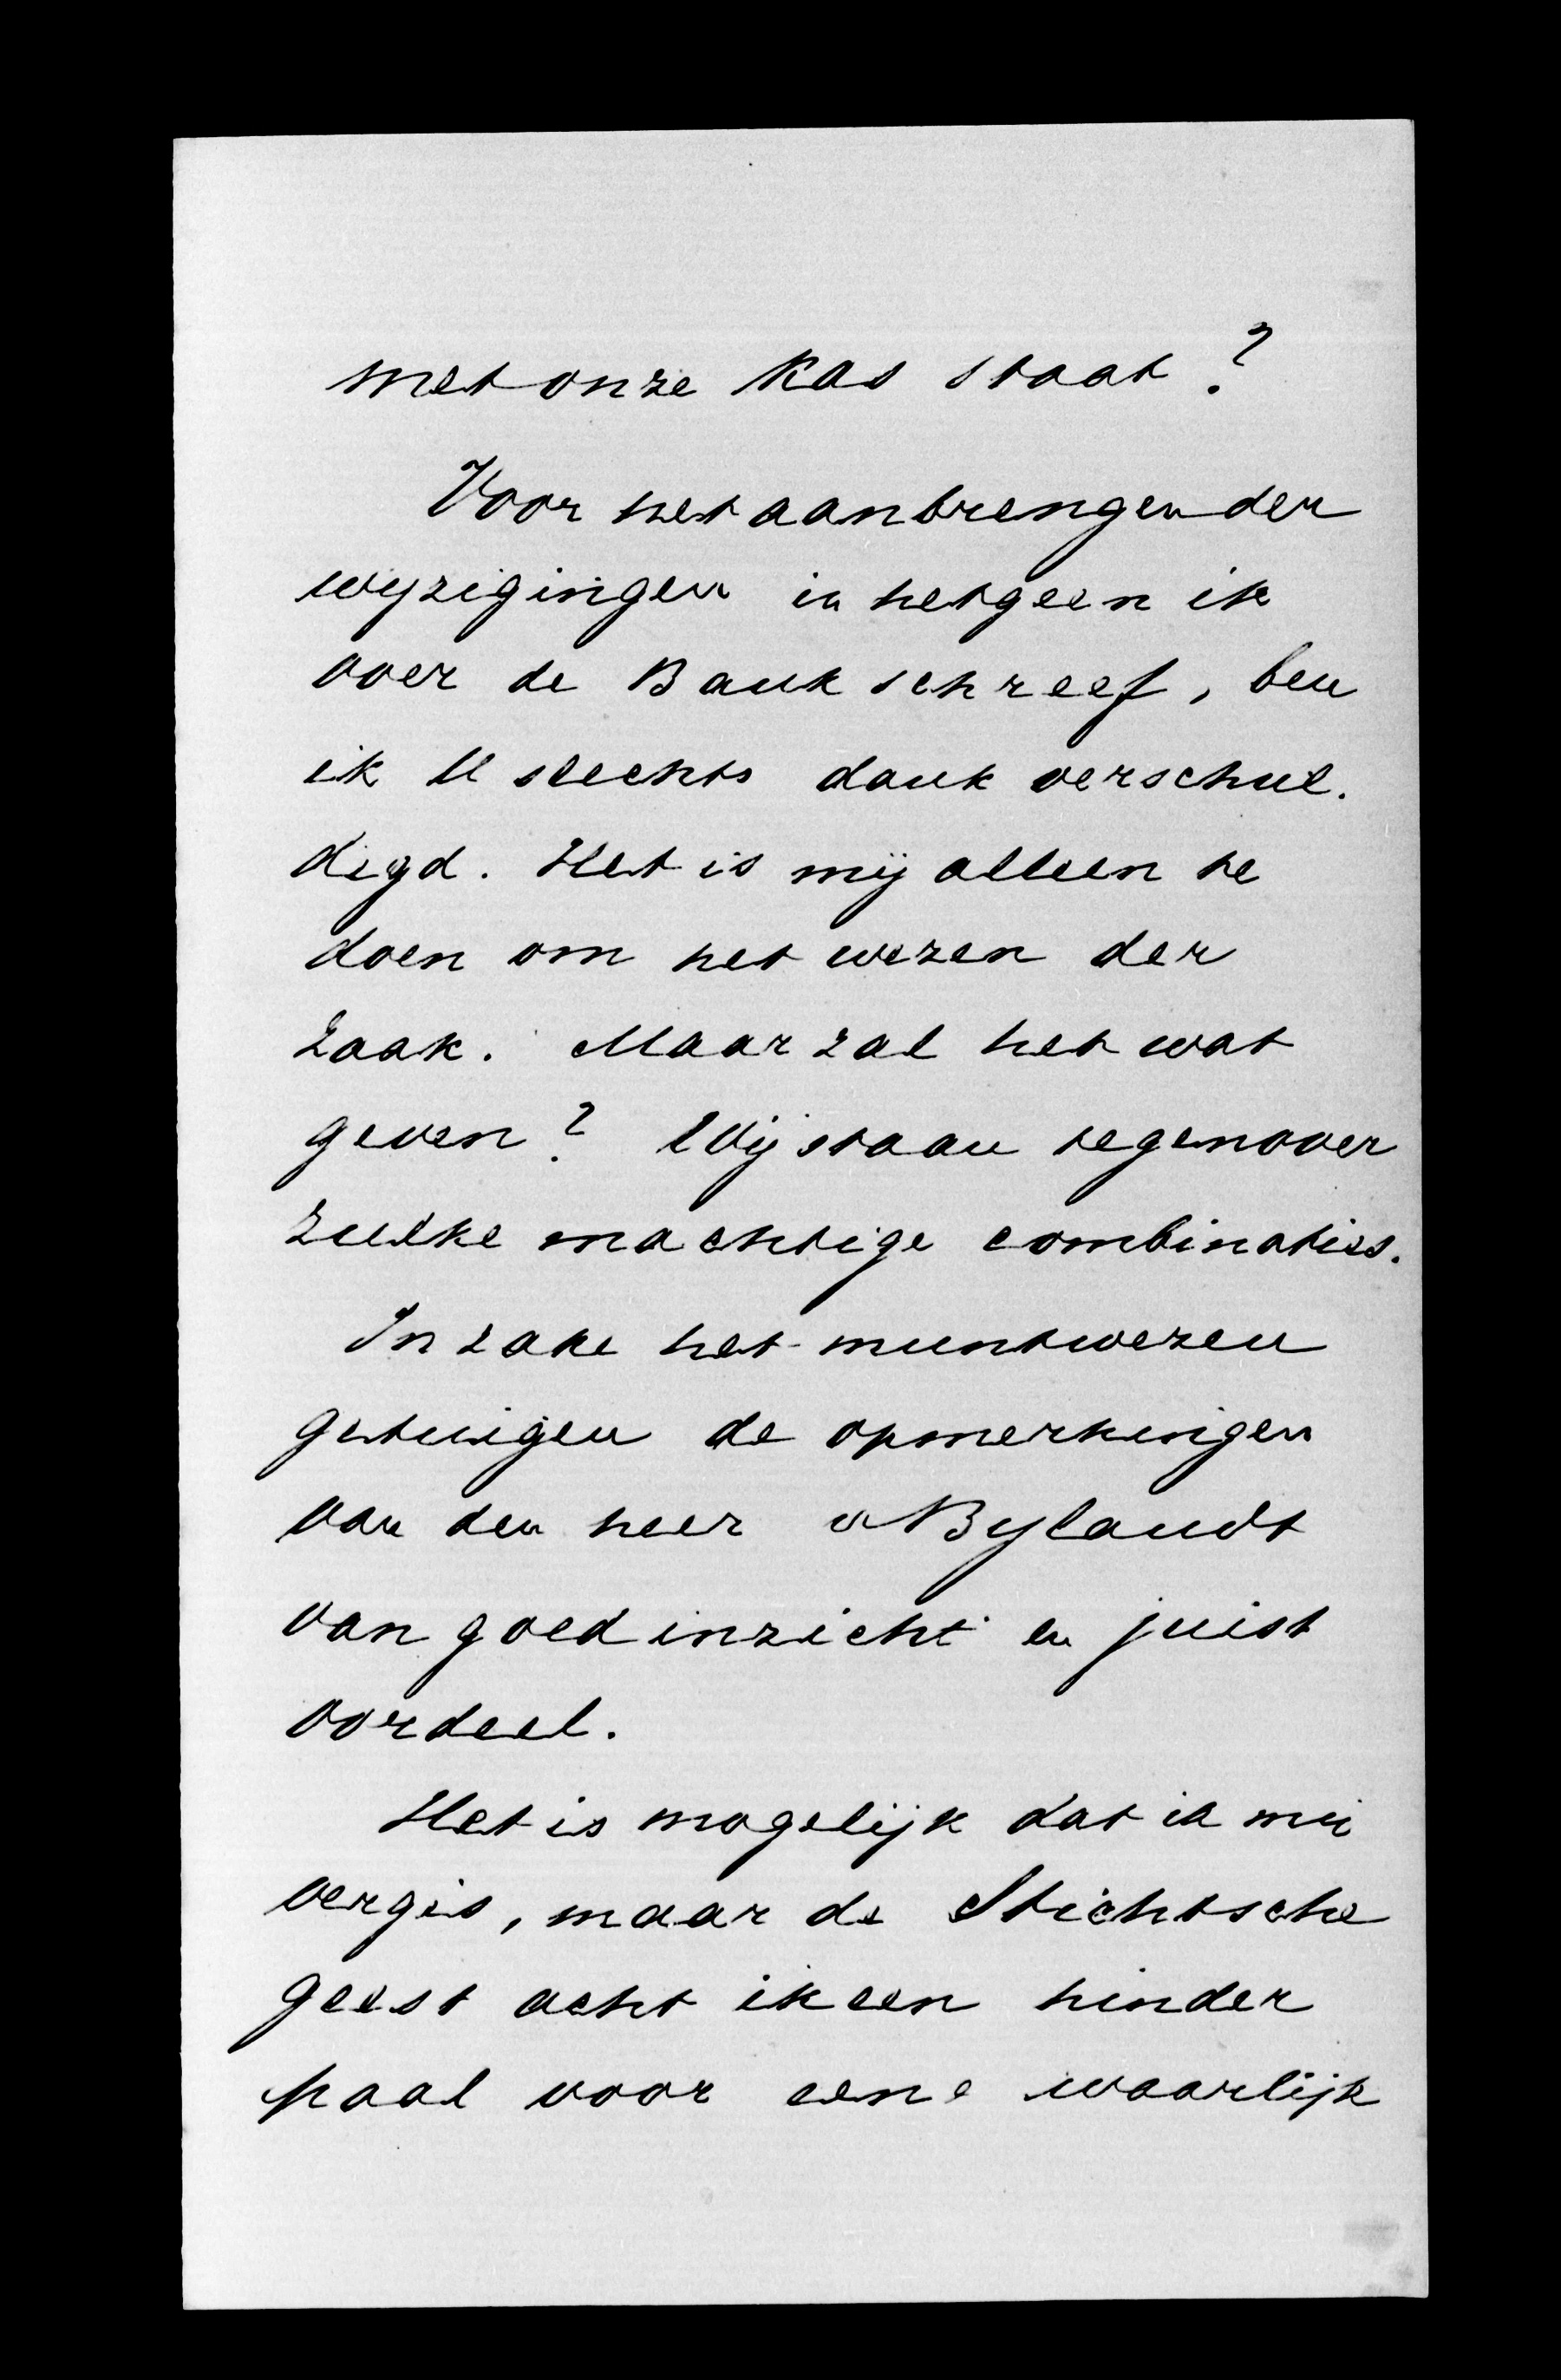 met onze kas staat?
Voor het aanbrengen der
wijzigingen in hetgeen ik
over de Bank schreef, ben
ik U slechts dank verschul.
digd. Het is mij alleen te
doen om het wezen der
zaak. Maar zal het wat
geven? Wij staan tegenover
zulke machtige combinaties.
In zake het muntwezen
getuigen de opmerkingen
van den heer v Bylandt
van goed inzicht en juist
oordeel.
Het is mogelijk dat ik mij
vergis, maar de Stichtsche
geest acht ik een hinder
paal voor eene waarlijk